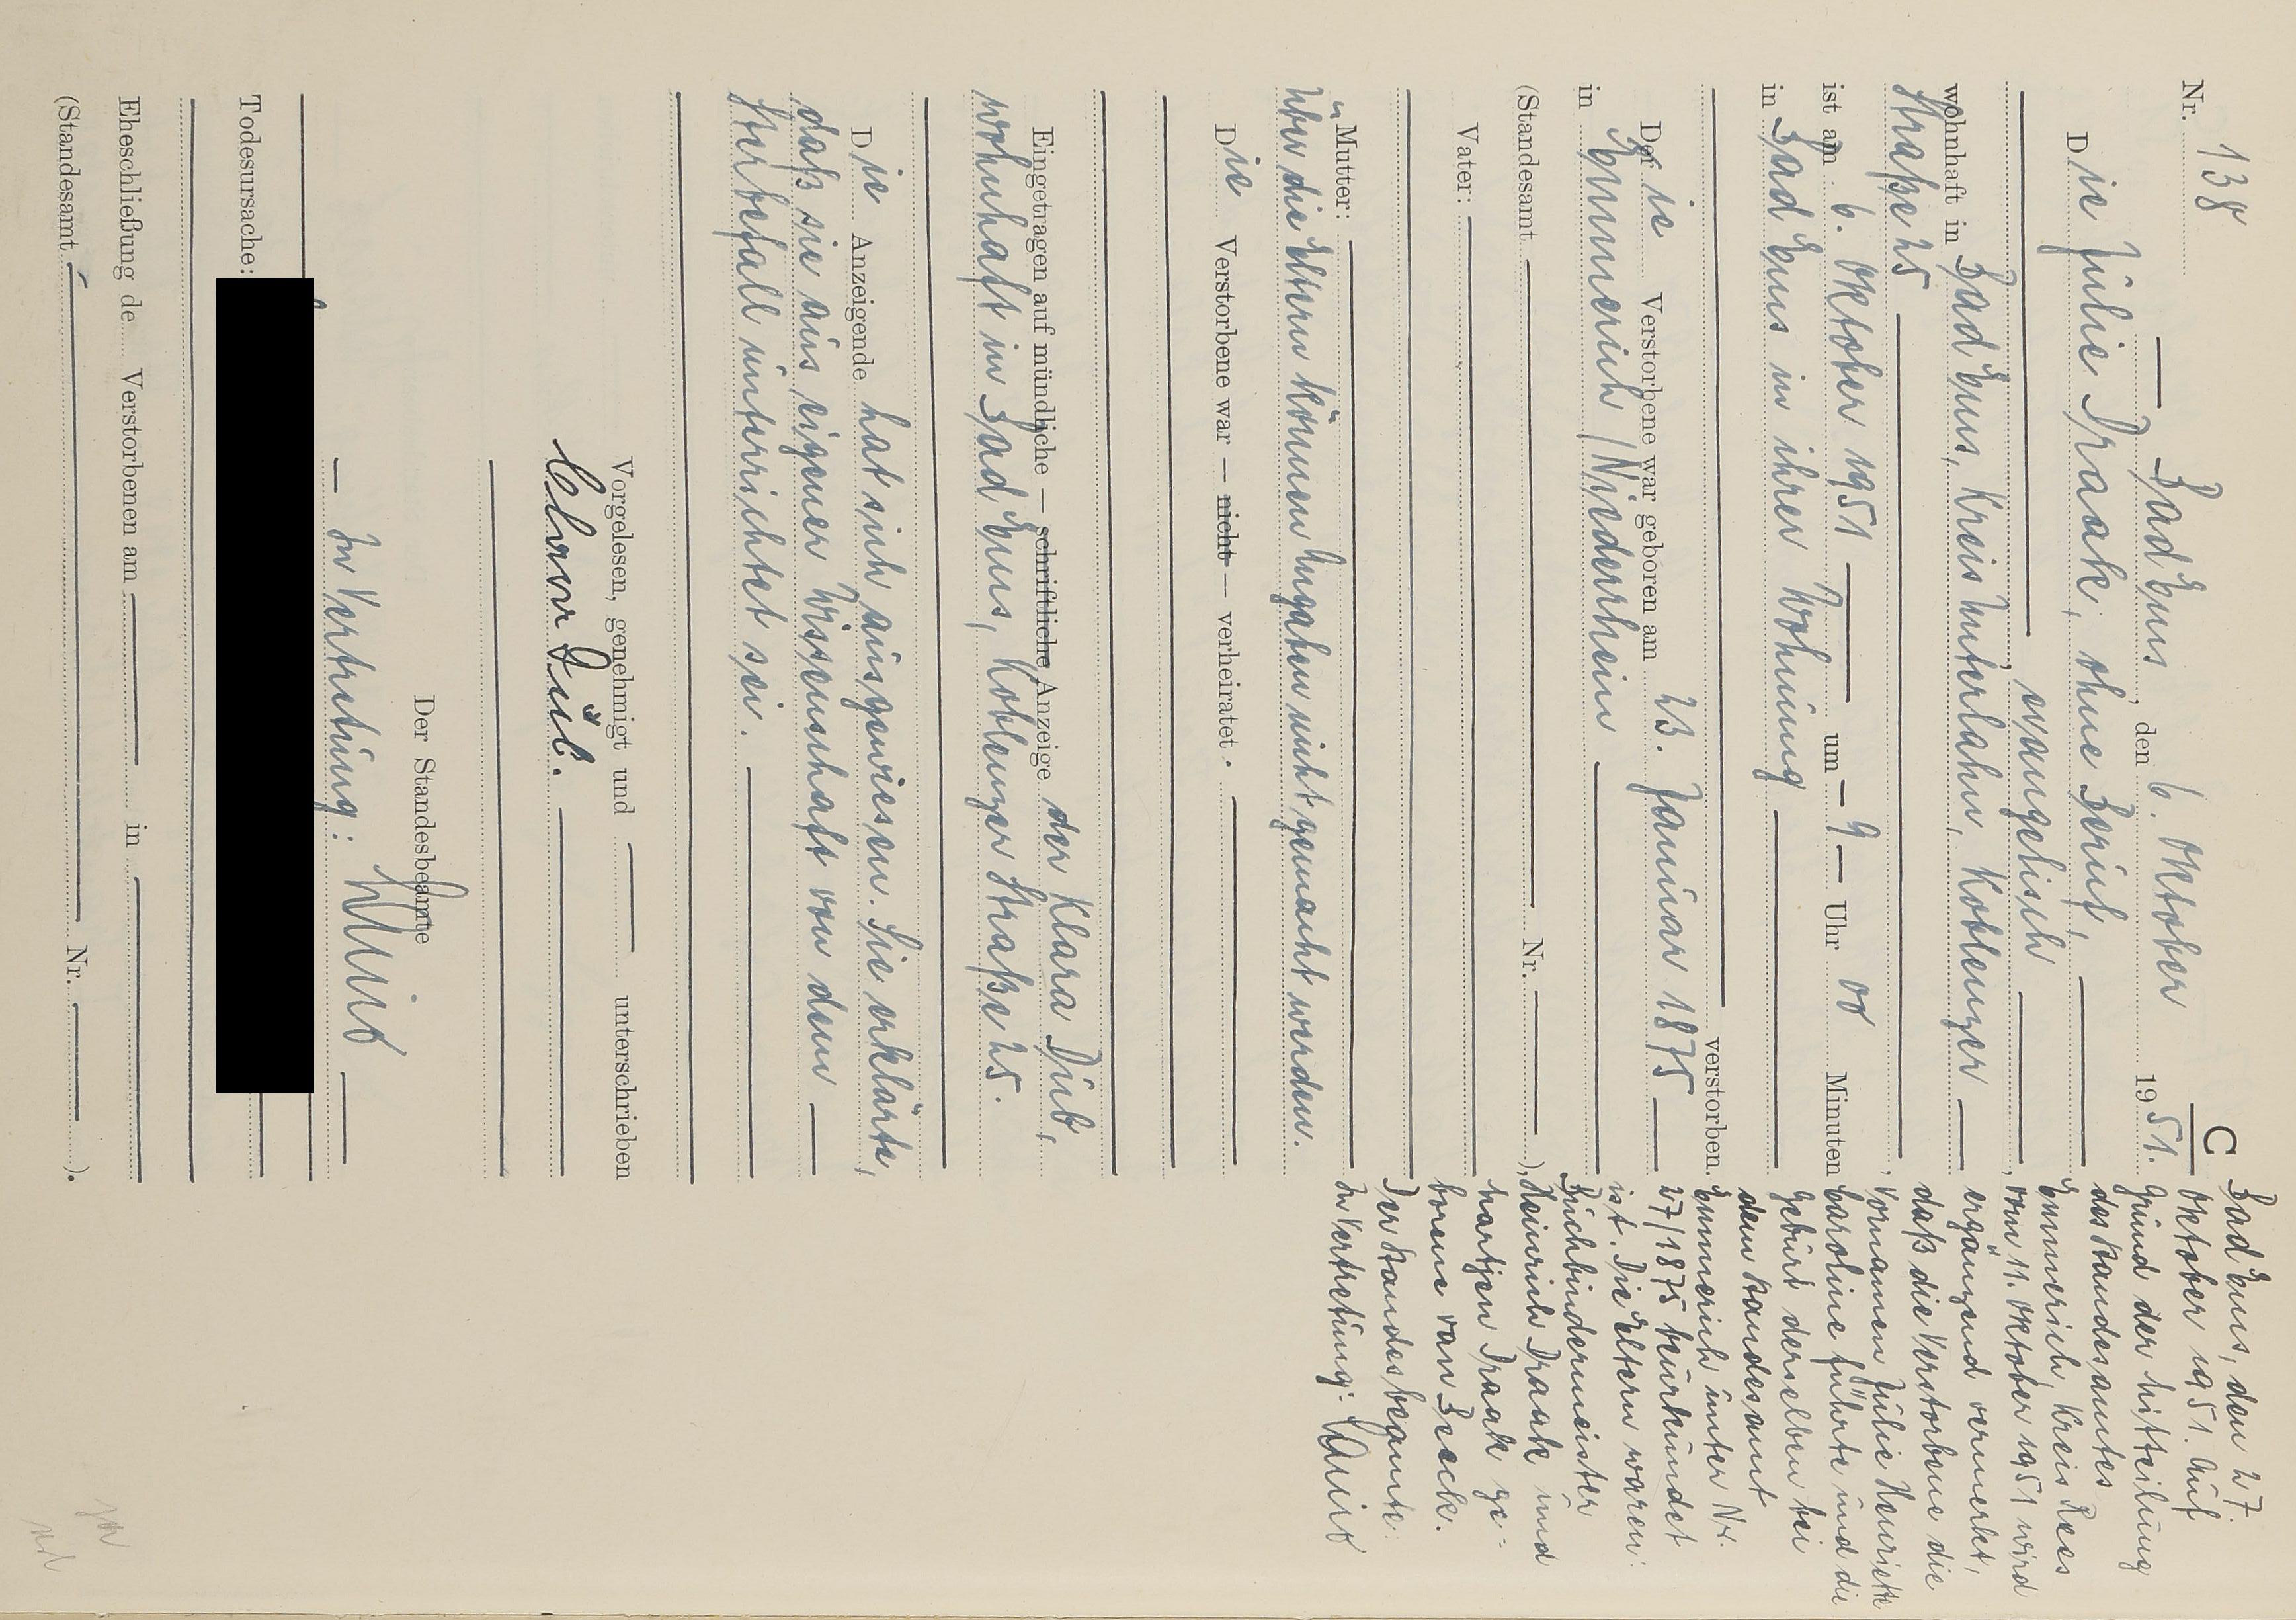 Nr. 138
C
Bad Ems, den 6. Oktober 1951.
Die Julie Draak, ohne Beruf,
, evangelisch,
wohnhaft in Bad Ems, Kreis Unterlahn, Koblenzer
Straße 25,
ist am 6. Oktober 1951 um 9 Uhr 00 Minuten
in Bad Ems in ihrer Wohnung
verstorben.
Der ie Verstorbene war geboren am 23. Januar 1875
in Emmerich / Niederrhein
(Standesamt Nr. ),
Vater:
Mutter:
Über die Eltern können Angaben nicht gemacht werden.
Die Verstorbene war — nicht — verheiratet.
Eingetragen auf mündliche — schriftliche Anzeige der Klara Düb,
wohnhaft in Bad Ems, Koblenzer Straße 25.
Die Anzeigende hat sich ausgewiesen. Sie erklärte,
daß sie aus eigener Wissenschaft von dem
Sterbefall unterrichtet sei.
Vorgelesen, genehmigt und unterschrieben
Der Standesbeamte
In Vertretung:
Todesursache:
Eheschließung de Verstorbenen am in
(Standesamt Nr. ).
Bad Ems, den 27.
Oktober 1951. Auf
Grund der Mitteilung
des Standesamtes
Emmerich, Kreis Rees
vom 11. Oktober 1951 wird
ergänzend vermerkt,
daß die Verstorbene die
Vornamen Julie Henriette
Caroline führte und die
Geburt derselben bei
dem Standesamt
Emmerich unter Nr.
27/1875 beurkundet
ist. Die Eltern waren:
Buchbindermeister
Heinrich Draak und
Draak ge-
borene van Beeck.
Der Standesbeamte:
In Vertretung: